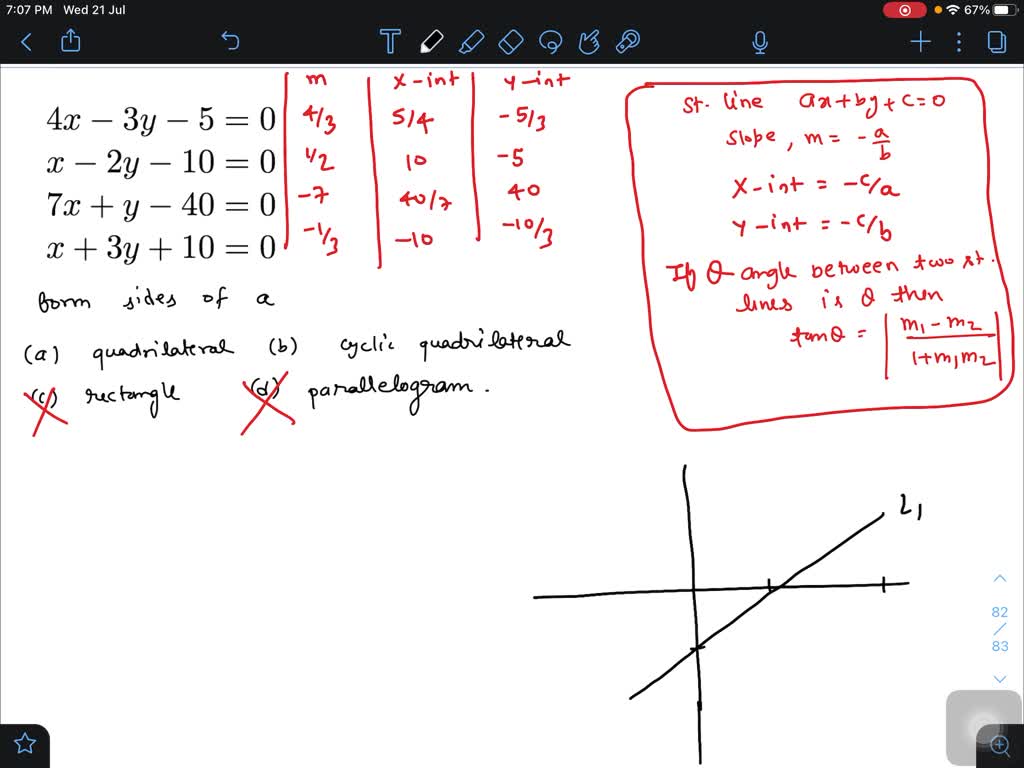 7:07 PM Wed 21 Jul 67%
4x − 3y − 5 = 0
x − 2y − 10 = 0
7x + y − 40 = 0
x + 3y + 10 = 0
m x-int y-int
4/3 5/4 -5/3
1/2 10 -5
-7 40/7 40
-1/3 -10 -10/3
form sides of a
(a) quadrilateral (b) cyclic quadrilateral
(c) rectangle (d) parallelogram.
St. line ax+by+c=0
Slope, m = -a/b
X-int = -c/a
Y-int = -c/b
If θ angle between two st.
lines is θ then
tanθ = |m₁-m₂ / 1+m₁m₂|
L₁
82
/
83